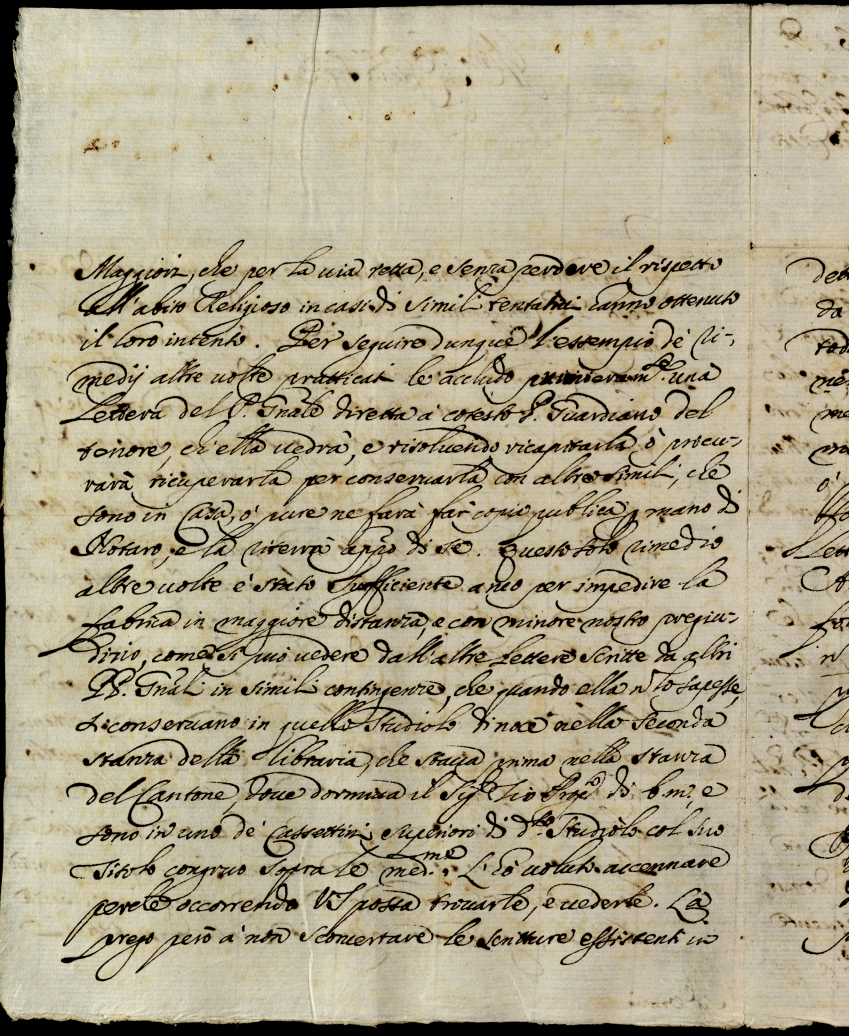 Maggiori, che per la uia retta, e senza perdere il rispetto
all'abito Religioso in casi di simili tentatiui hanno ottenuto
il loro intento. Per seguire dunque l'essempio de ri-
medij altre uolte pratticati le accludo primieram.te una
Lettera del P. Gnãle diretta à cotesto P. Guardiano del
tenore, ch'ella uedrà, e risoluendo ricapitarla ò procu-
rarà ricuperarla per conseruarla con altre simili, che
sono in Casa, ò pure ne farà far copia publica p mano di
Notaro, e la riterrà app.o di se. Questo solo rimedio
altre uolte è stato sufficiente anco per impedire la
fabrica in maggiore distanza, e con minore nostro pregiu-
dizio, come si può uedere dall'altre Lettere scritte da altri
PP. Gnãli in simili contingenze, che quando ella ñ lo sapesse,
si conseruano in quello Studiolo di noce nella seconda
stanza della libraria, che staua prima nella stanza
del Cantone, doue dormiua il Sig.r Zio di b.m., e
sono in uno de Cassettini superiori di d.to Studiolo col suo
Titolo congruo sopra le med.me. L'hò uoluto accennare
perche occorrendo VS possa trouarle, e uederle. La
prego però à non sconcertare le scritture essistenti in